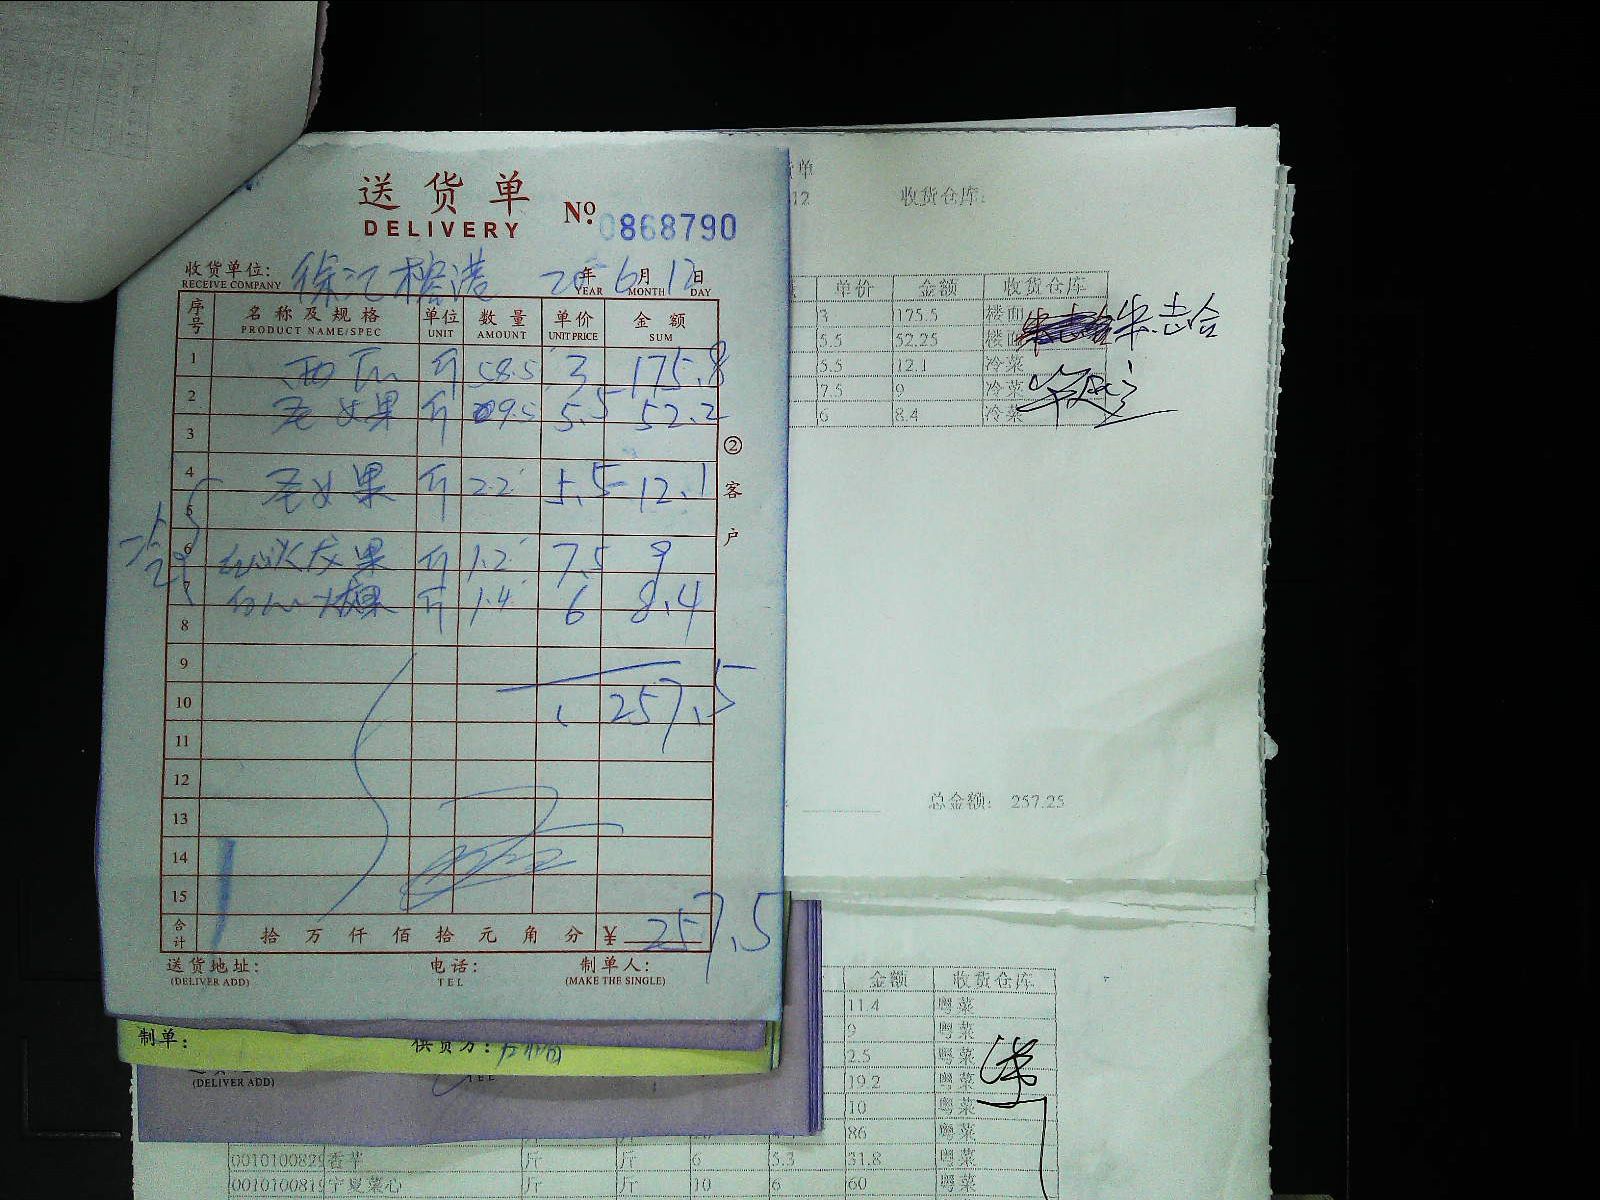 送货单
DELIVERY
No. 0868790
收货单位: 徐汇榕港 20 年 6月 12日
RECEIVE COMPANY YEAR MONTH DAY
序号 名称及规格 单位 数量 单价 金额
PRODUCT NAME/SPEC UNIT AMOUNT UNIT PRICE SUM
1 西瓜 斤 58.5 3 175.8
2 圣女果 斤 9.5 5.5 52.2
3
4 圣女果 斤 2.2 5.5 12.1
5
6 红心火龙果 斤 1.2 7.5 9
7 白心火龙果 斤 1.4 6 8.4
8
9
10 257.5
11
12
13
14
15
合计 拾 万 仟 佰 拾 元 角 分 ¥ 257.5
送货地址: 电话: 制单人:
(DELIVER ADD) TEL (MAKE THE SINGLE)
②客户
制单: 供货方:
(DELIVER ADD) TEL
单
12 收货仓库:
单价 金额 收货仓库
3 175.5 楼面
5.5 52.25 楼面
5.5 12.1 冷菜
7.5 9 冷菜
6 8.4 冷菜
总金额: 257.25
金额 收货仓库
11.4 粤菜
9 粤菜
2.5 粤菜
19.2 粤菜
10 粤菜
86 粤菜
0010100829 香芋 斤 斤 6 5.3 31.8 粤菜
0010100819 宁夏菜心 斤 斤 10 6 60 粤菜